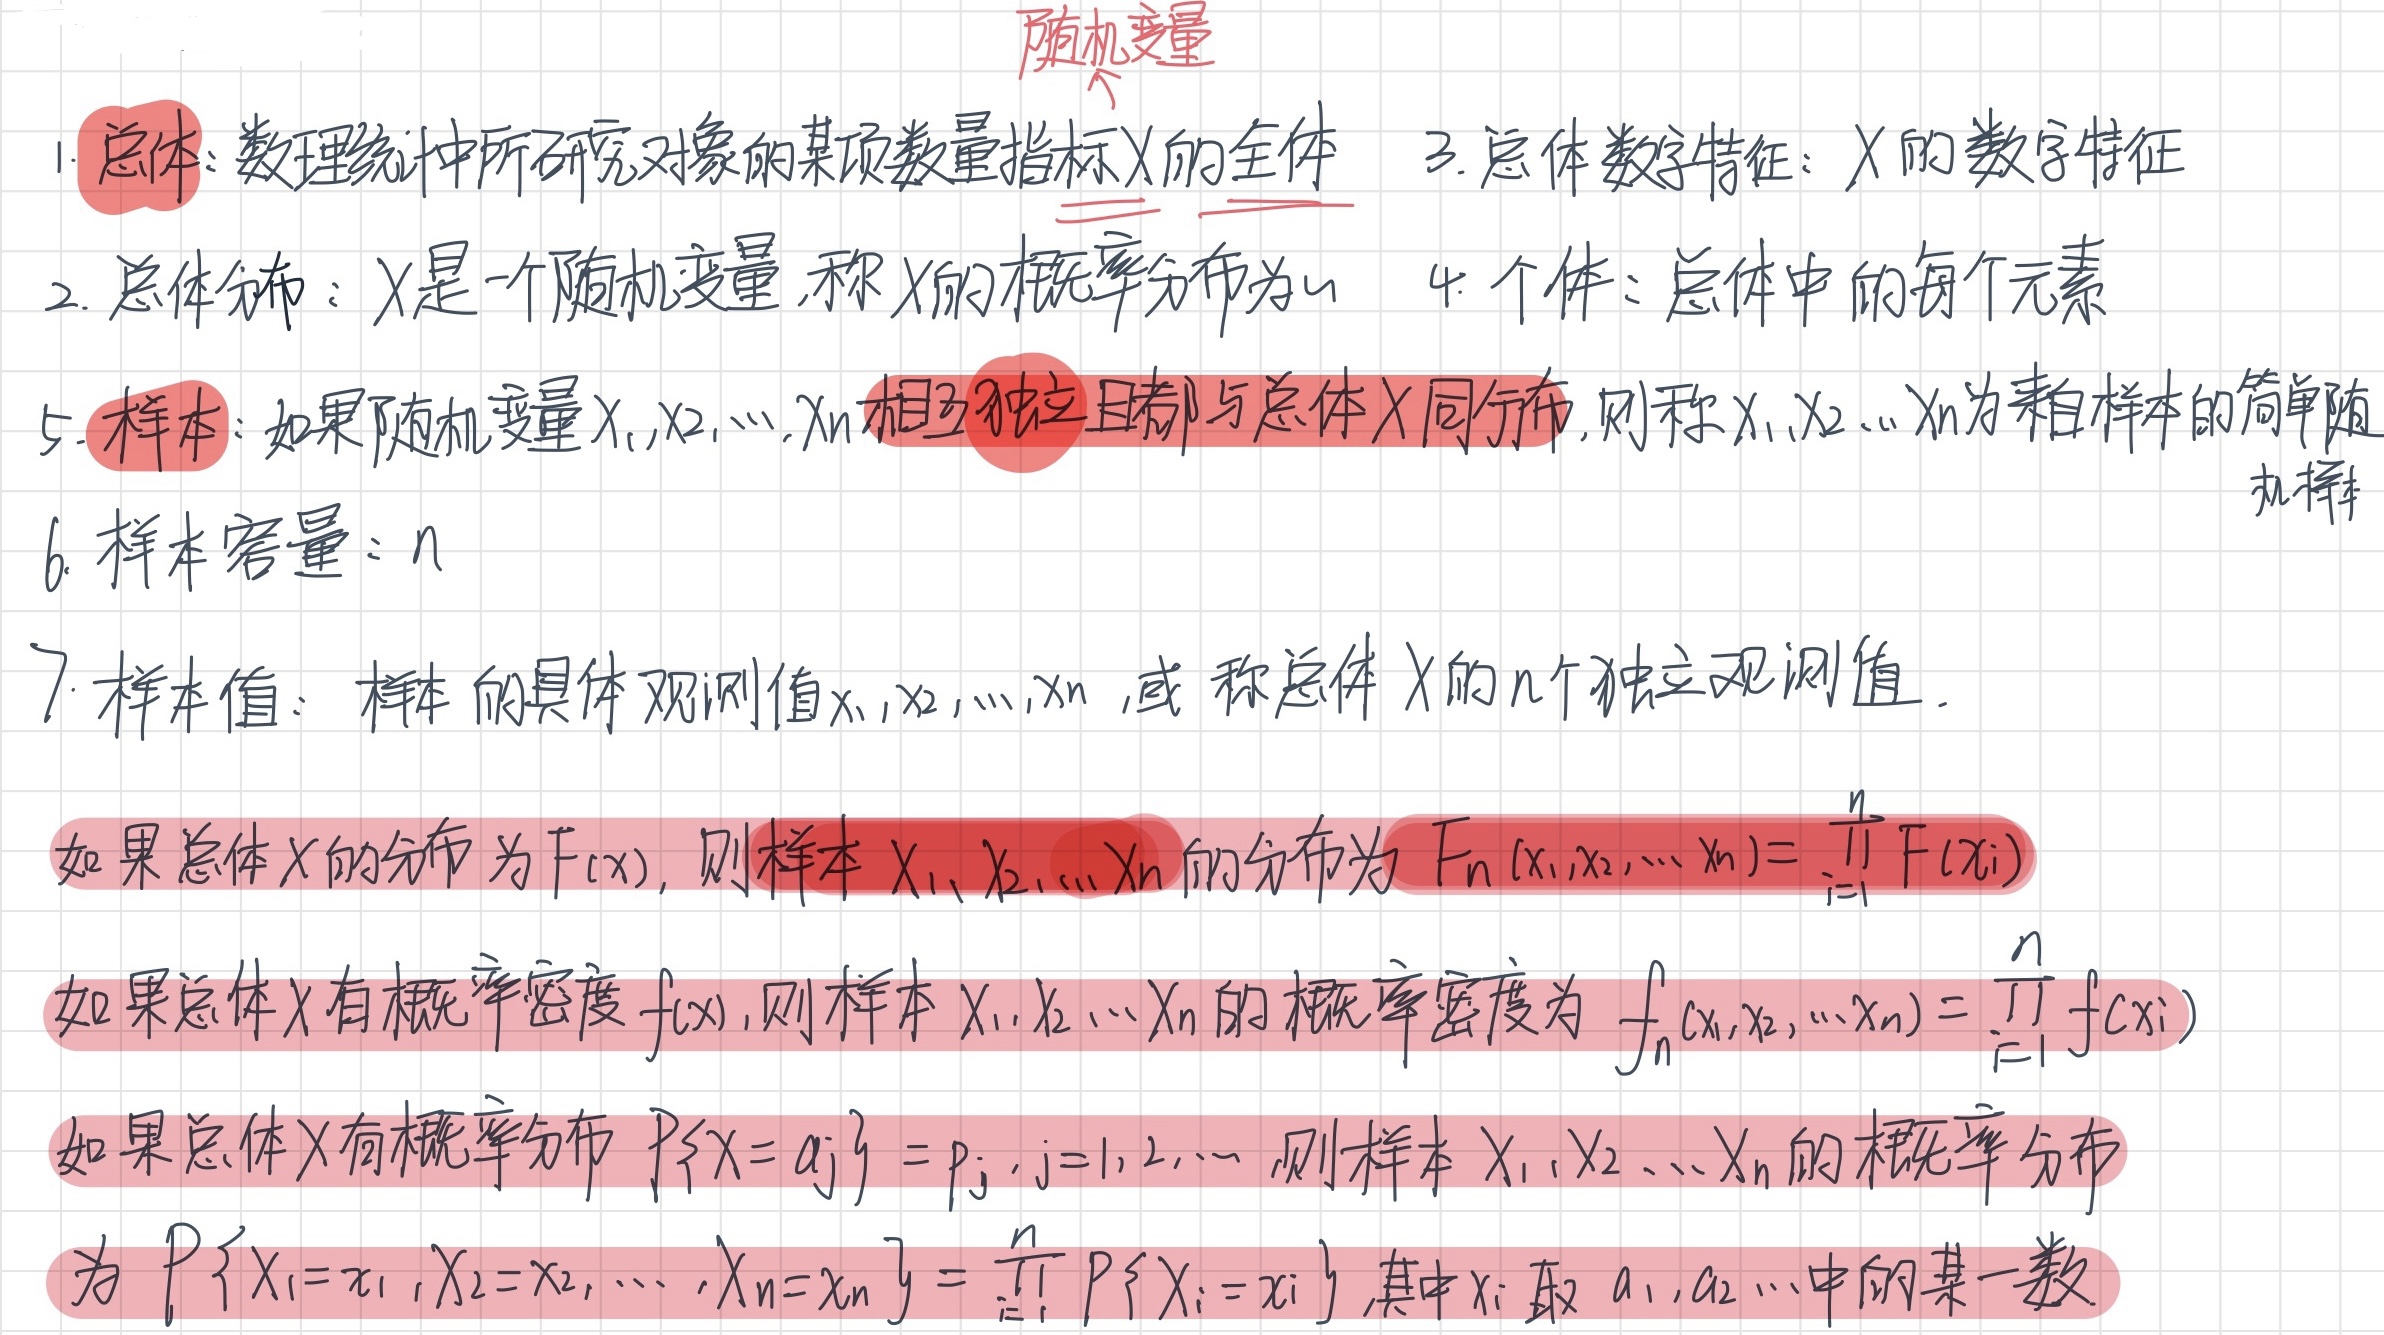 随机变量
1. 总体：数理统计中所研究对象的某项数量指标X的全体
3. 总体数字特征：X的数字特征
2. 总体分布：X是一个随机变量,称X的概率分布为~
4. 个体：总体中的每个元素
5. 样本：如果随机变量X₁,X₂,…,Xn相互独立且都与总体X同分布,则称X₁,X₂…Xn为来自样本的简单随
机样本
6. 样本容量：n
7. 样本值：样本的具体观测值x₁,x₂,…,xn,或称总体X的n个独立观测值.
如果总体X的分布为F(x),则样本X₁,X₂,…Xn的分布为Fn(x₁,x₂,…xn)=∏ⁿᵢ₌₁F(xi)
如果总体X有概率密度f(x),则样本X₁,X₂…Xn的概率密度为fn(x₁,x₂,…xn)=∏ⁿᵢ₌₁f(xi)
如果总体X有概率分布P{X=aj}=pj,j=1,2,…则样本X₁,X₂、…Xn的概率分布
为P{X₁=x₁,X₂=x₂,…,Xn=xn}=∏ⁿᵢ₌₁P{Xi=xi},其中xi取a₁,a₂…中的某一数